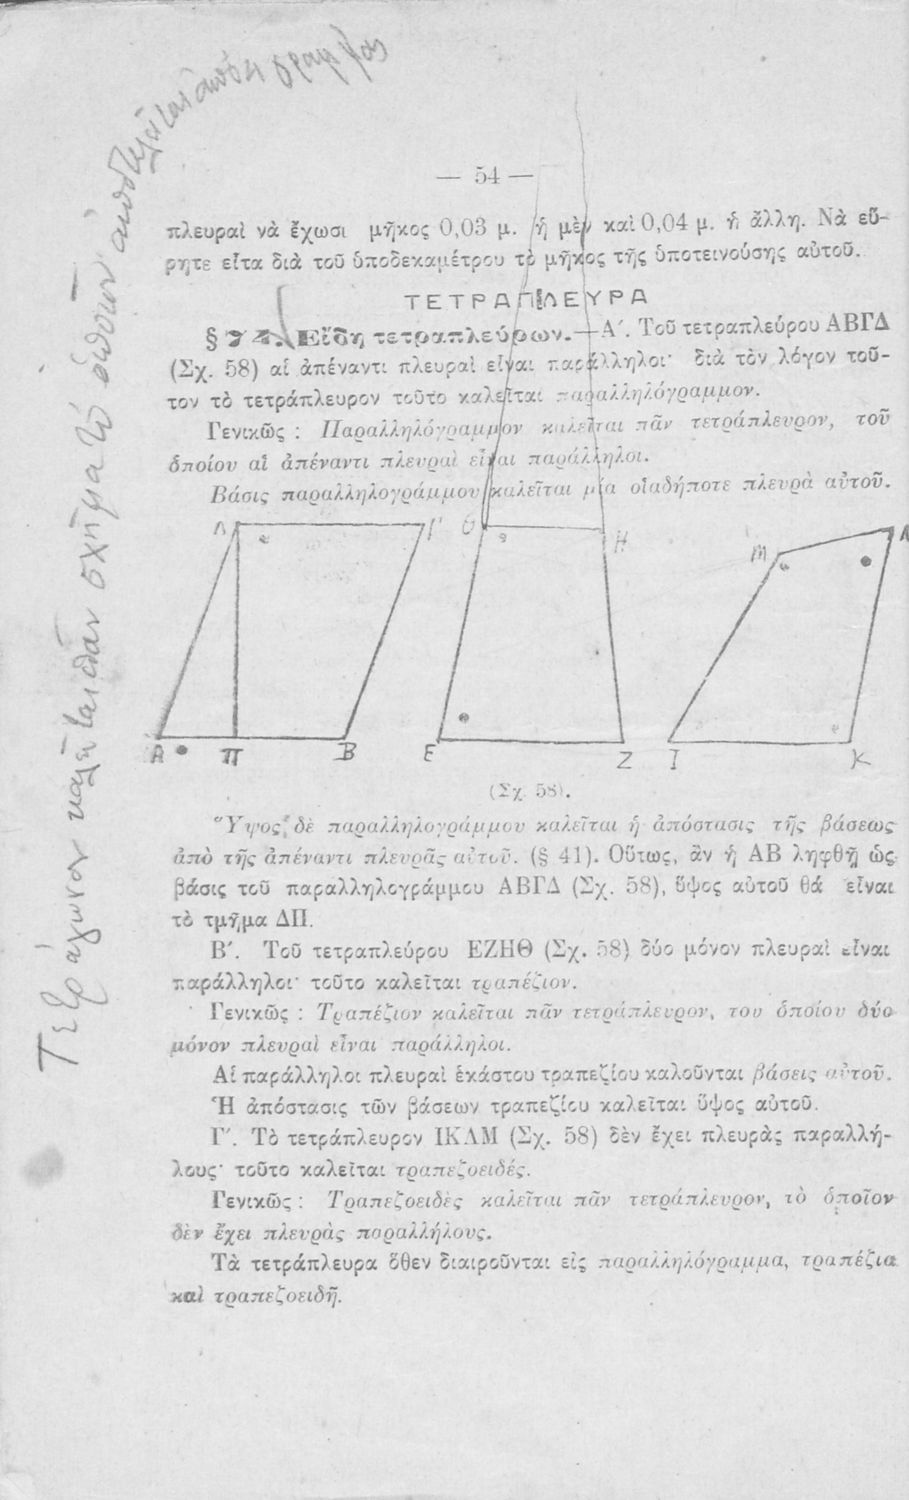 — 54 —
πλευραὶ νὰ ἔχωσι μῆκος 0,03 μ. ἡ μὲν καὶ 0,04 μ. ἡ ἄλλη. Νὰ εὕ-
ρητε εἶτα διὰ τοῦ ὑποδεκαμέτρου τὸ μῆκος τῆς ὑποτεινούσης αὐτοῦ.
ΤΕΤΡΑΠΛΕΥΡΑ
§ 74. Εἴδη τετραπλεύρων.—Α΄. Τοῦ τετραπλεύρου ΑΒΓΔ
(Σχ. 58) αἱ ἀπέναντι πλευραὶ εἶναι παράλληλοι· διὰ τὸν λόγον τοῦ-
τον τὸ τετράπλευρον τοῦτο καλεῖται παραλληλόγραμμον.
Γενικῶς : Παραλληλόγραμμον καλεῖται πᾶν τετράπλευρον, τοῦ
ὁποίου αἱ ἀπέναντι πλευραὶ εἶναι παράλληλοι.
Βάσις παραλληλογράμμου καλεῖται μία οἱαδήποτε πλευρὰ αὐτοῦ.
Δ Γ Θ Η Μ Λ
Α Π Β Ε Ζ Ι Κ
(Σχ. 58).
Ὕψος δὲ παραλληλογράμμου καλεῖται ἡ ἀπόστασις τῆς βάσεως
ἀπὸ τῆς ἀπέναντι πλευρᾶς αὐτοῦ. (§ 41). Οὕτως, ἂν ἡ ΑΒ ληφθῇ ὡς
βάσις τοῦ παραλληλογράμμου ΑΒΓΔ (Σχ. 58), ὕψος αὐτοῦ θά εἶναι
τὸ τμῆμα ΔΠ.
Β΄. Τοῦ τετραπλεύρου ΕΖΗΘ (Σχ. 58) δύο μόνον πλευραὶ εἶναι
παράλληλοι· τοῦτο καλεῖται τραπέζιον.
Γενικῶς : Τραπέζιον καλεῖται πᾶν τετράπλευρον, του ὁποίου δύο
μόνον πλευραὶ εἶναι παράλληλοι.
Αἱ παράλληλοι πλευραὶ ἑκάστου τραπεζίου καλοῦνται βάσεις αὐτοῦ.
Ἡ ἀπόστασις τῶν βάσεων τραπεζίου καλεῖται ὕψος αὐτοῦ.
Γ΄. Τὸ τετράπλευρον ΙΚΛΜ (Σχ. 58) δὲν ἔχει πλευρὰς παραλλή-
λους· τοῦτο καλεῖται τραπεζοειδές.
Γενικῶς : Τραπεζοειδὲς καλεῖται πᾶν τετράπλευρον, τὸ ὁποῖον
δὲν ἔχει πλευρὰς παραλλήλους.
Τὰ τετράπλευρα ὅθεν διαιροῦνται εἰς παραλληλόγραμμα, τραπέζια
καὶ τραπεζοειδῆ.
καλεῖται πᾶν σχῆμα τὸ ὁποῖον ἀποτελεῖται ἀπὸ